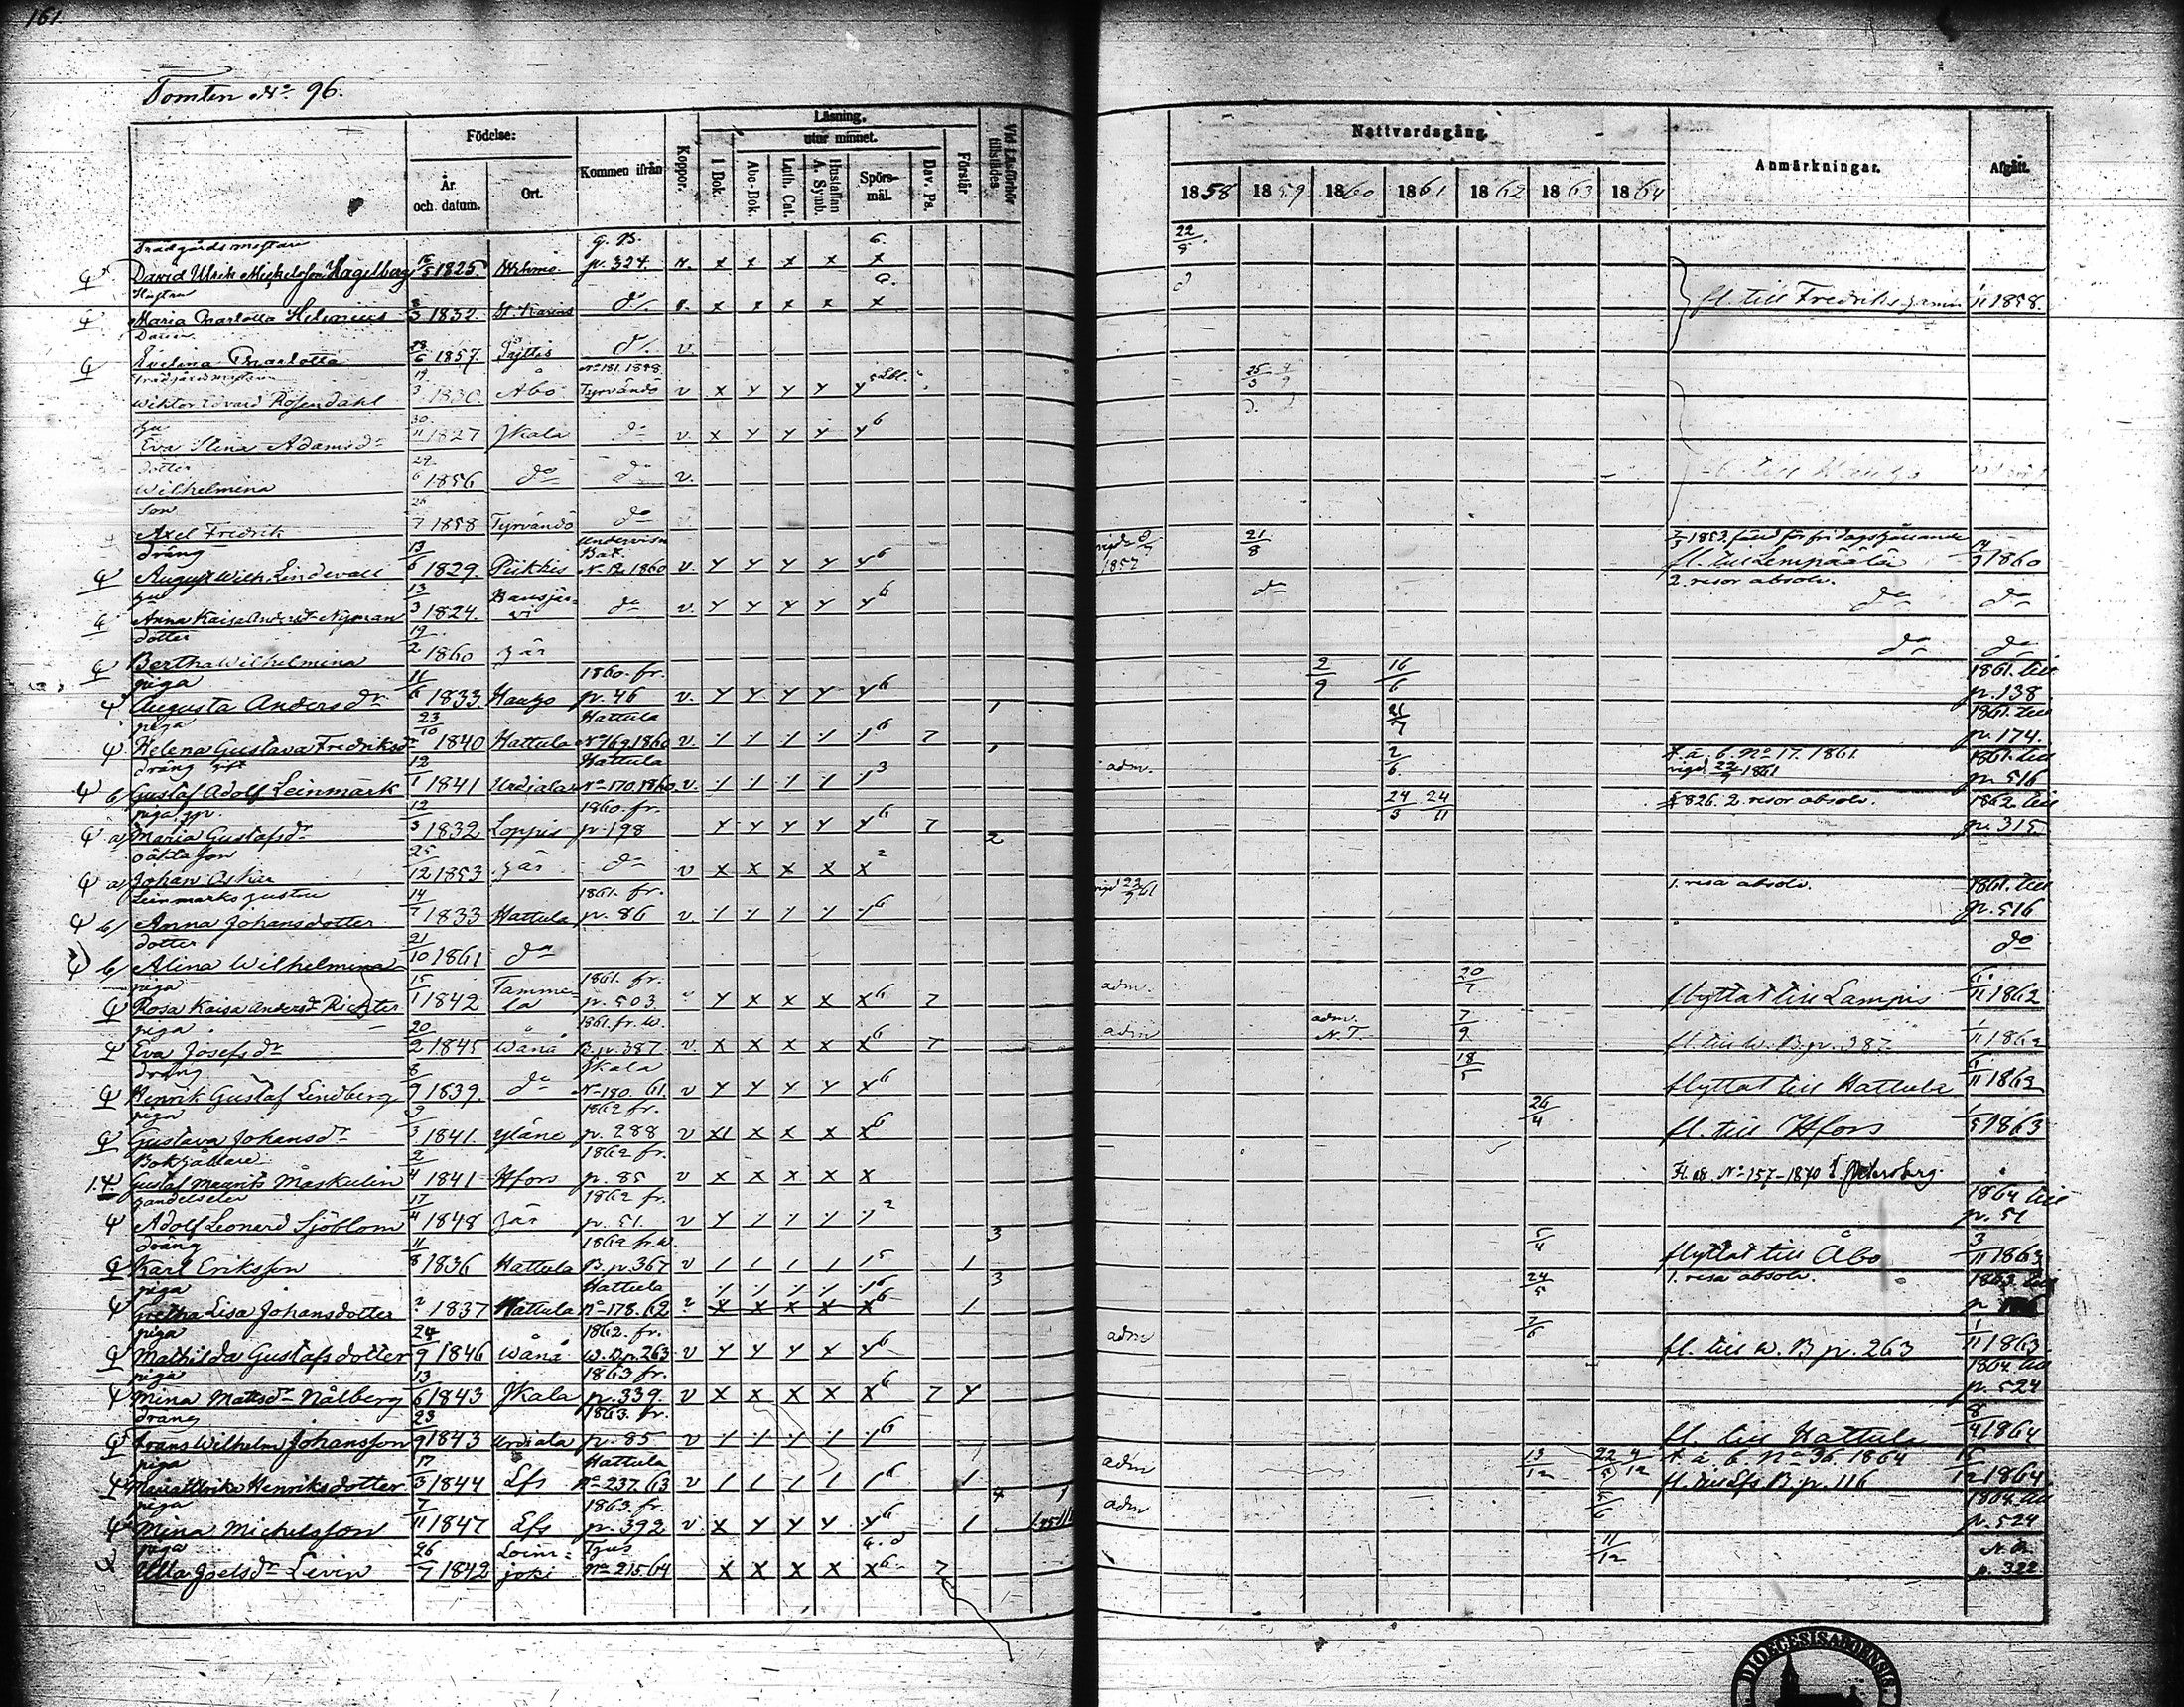 161
Tomten No 96.
Födelse:
År och datum.
Ort.
Kommen ifrån
Koppor.
Läsning,
utur minnet.
I Bok.
Abc-Bok.
Luth. Cat.
Hustaflan A. Symb.
Spörs-mål.
Dav. Ps.
Förstår
Vid Läsförhör tillstädes
Nattvardsgång.
1858 1859 1860 1861 1862 1863 1864
Anmärkningar.
Afgått.
Trädgårdsmästare g. B. 6. 22/5
David Ulrik Mickelsson Hagelberg 1825. p. 324. x x x x x
Hustru
Maria Charlotta Helenius 8/3 1832. St. Karins do x x x x x fl. till Fredrikshamn 1858.
Evelina Charlotta 1857. Pyttis do v.
No 181. 1858
Wiktor Edvard Rosendahl 19/3 1830 Åbo Tyrvändö v x y y y y 25/3
Eva Stina Adamsdr 30/11 1827 Jkala do v. x y y y y6
dotter
Wilhelmina 29/6 1856 do do v.
son
Axel Fredrik 26/7 1858 Tyrvändö do
dräng 1857 21/8
August Wilh. Lindevall 13/6 1829. Piikkis No 12. 1860 v. y y y y y6 fl. till Lempäälä 1860
2. resor absolv.
Anna Kaisa Andersdr Nyman 13/3 1824. do v. y y y y y6 do do do
dotter
Bertha Wilhelmina 19/2 1860 här do do
piga 1860. fr. 2/9 16/6 1861. till
Augusta Andersdr 11/6 1833. Hauho p. 46 v. y y y y y6 p. 138
piga Hattula 1 21/7 1861. till
Helena Gustava Fredriksdr 23/10 1840 Hattula No 169. 1860 v. 7 p. 174.
dräng Hattula 1 adm. 2/6 A. ä. b. No 17. 1861. 1861. till
b/ Gustaf Adolf Leinmark 12/1 1841 Urdiala No 170. 1860. v. 3 vigd 22/9 1861 p. 516
piga 1860. fr. 24/3 24/11 § 826. 2. resor absolv. 1862. till
a/ Maria Gustafsdr 12/3 1832 Loppis p. 198 y y y y y6 7 2 p. 315
oäkta son
a/ Johan Oskar 25/12 1853 här do v x x x x x2
Leinmarks hustru 1861. fr. vigd 22/9 61 1. resa absolv. 1861. till
b/ Anna Johansdotter 14/7 1833 Hattula p. 86 v. 6 p. 516
dotter
b/ Alina Wilhelmina 21/10 1861 do do
piga 1861. fr. adm. 20/7
Rosa Kaisa Andersdr Richter 15/1 1842 Tammela p. 503 y x x x x6 7 flyttat till Lampis 1862
piga 1861. fr. W. adm adm. N. T. 7/9
Eva Josefsdr 20/2 1845 Wånå B. p. 387 v. x x x x x6 7 fl. till W. B. p. 387 1/11 1862
dräng Jkala 18/5
Henrik Gustaf Lindberg 8/9 1839. do No 180. 61. v y y y y y6 flyttat till Hattula 1862
piga 1862 fr. 26/4
Gustava Johansdr 9/3 1841. Yläne p. 288 v x x x x x6 fl. till Hfors 1863
Bokhållare 1862 fr.
Gustaf Maurits Maskulin 2/4 1841 Hfors p. 85 v x x x x x Fl. att. No 157-1870 S. Petersburg.
handelselev 1862 fr. 1864 till
Adolf Leonerd Sjöblom 17/4 1848 här p. 51. v 2 p. 51
dräng 1862 fr. W. 3 5/4
Karl Eriksson 11/8 1836 Hattula B. p. 367 v 1 1 1 1 1 5 1 flyttat till Åbo 3/11 1863
piga Hattula 3 24/5 1. resa absolv. 1863. till
Gretha Lisa Johansdotter 1837 Hattula No 178. 62 x x x x x6 1 p.
piga 1862. fr. adm 7/6
Mathilda Gustafsdotter 24/9 1846 Wånå W. B. p. 263 v y y y y y6 fl. till W. B p. 263 1/11 1863.
piga 1863 fr. 1864. till
Mina Mattsdr Nålberg 13/6 1843 Jkala p. 339. v x x x x x6 7 y p. 524
dräng 1863. fr.
Frans Wilhelm Johansson 23/9 1843 Urdiala p. 85 v 6 fl. till Hattula 1864
piga Hattula adm 13/12 22/5 4/12 A. ä. b. No 36. 1864
Maria Ulrika Henriksdotter 17/3 1844 Lfs No 237. 63 v 1 1 1 1 1 6 1 fl. till Lfs B. p. 116 1864.
piga 1863. fr. 4 1 adm 1864. till
Mina Michelsson 7/11 1847 Lfs p. 392 v. x y y y y6 1 p. 524
piga 11/12
Ulla Joelsdr Levin 26/7 1842 Loimjoki No 215. 64 x x x x x6 7 p. 322
DIOECESIS ABOENSIS